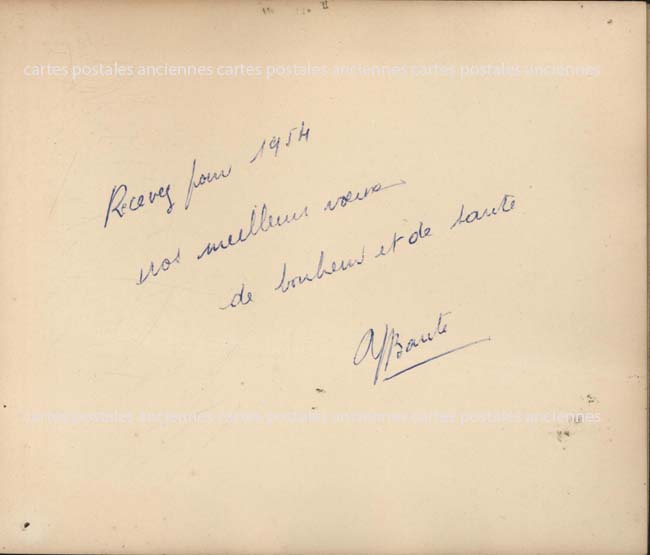 cartes postales anciennes cartes postales anciennes cartes postales anciennes
Recevez pour 1954
nos meilleurs voeux
de bonheur et de santé
cartes postales anciennes cartes postales anciennes cartes postales anciennes